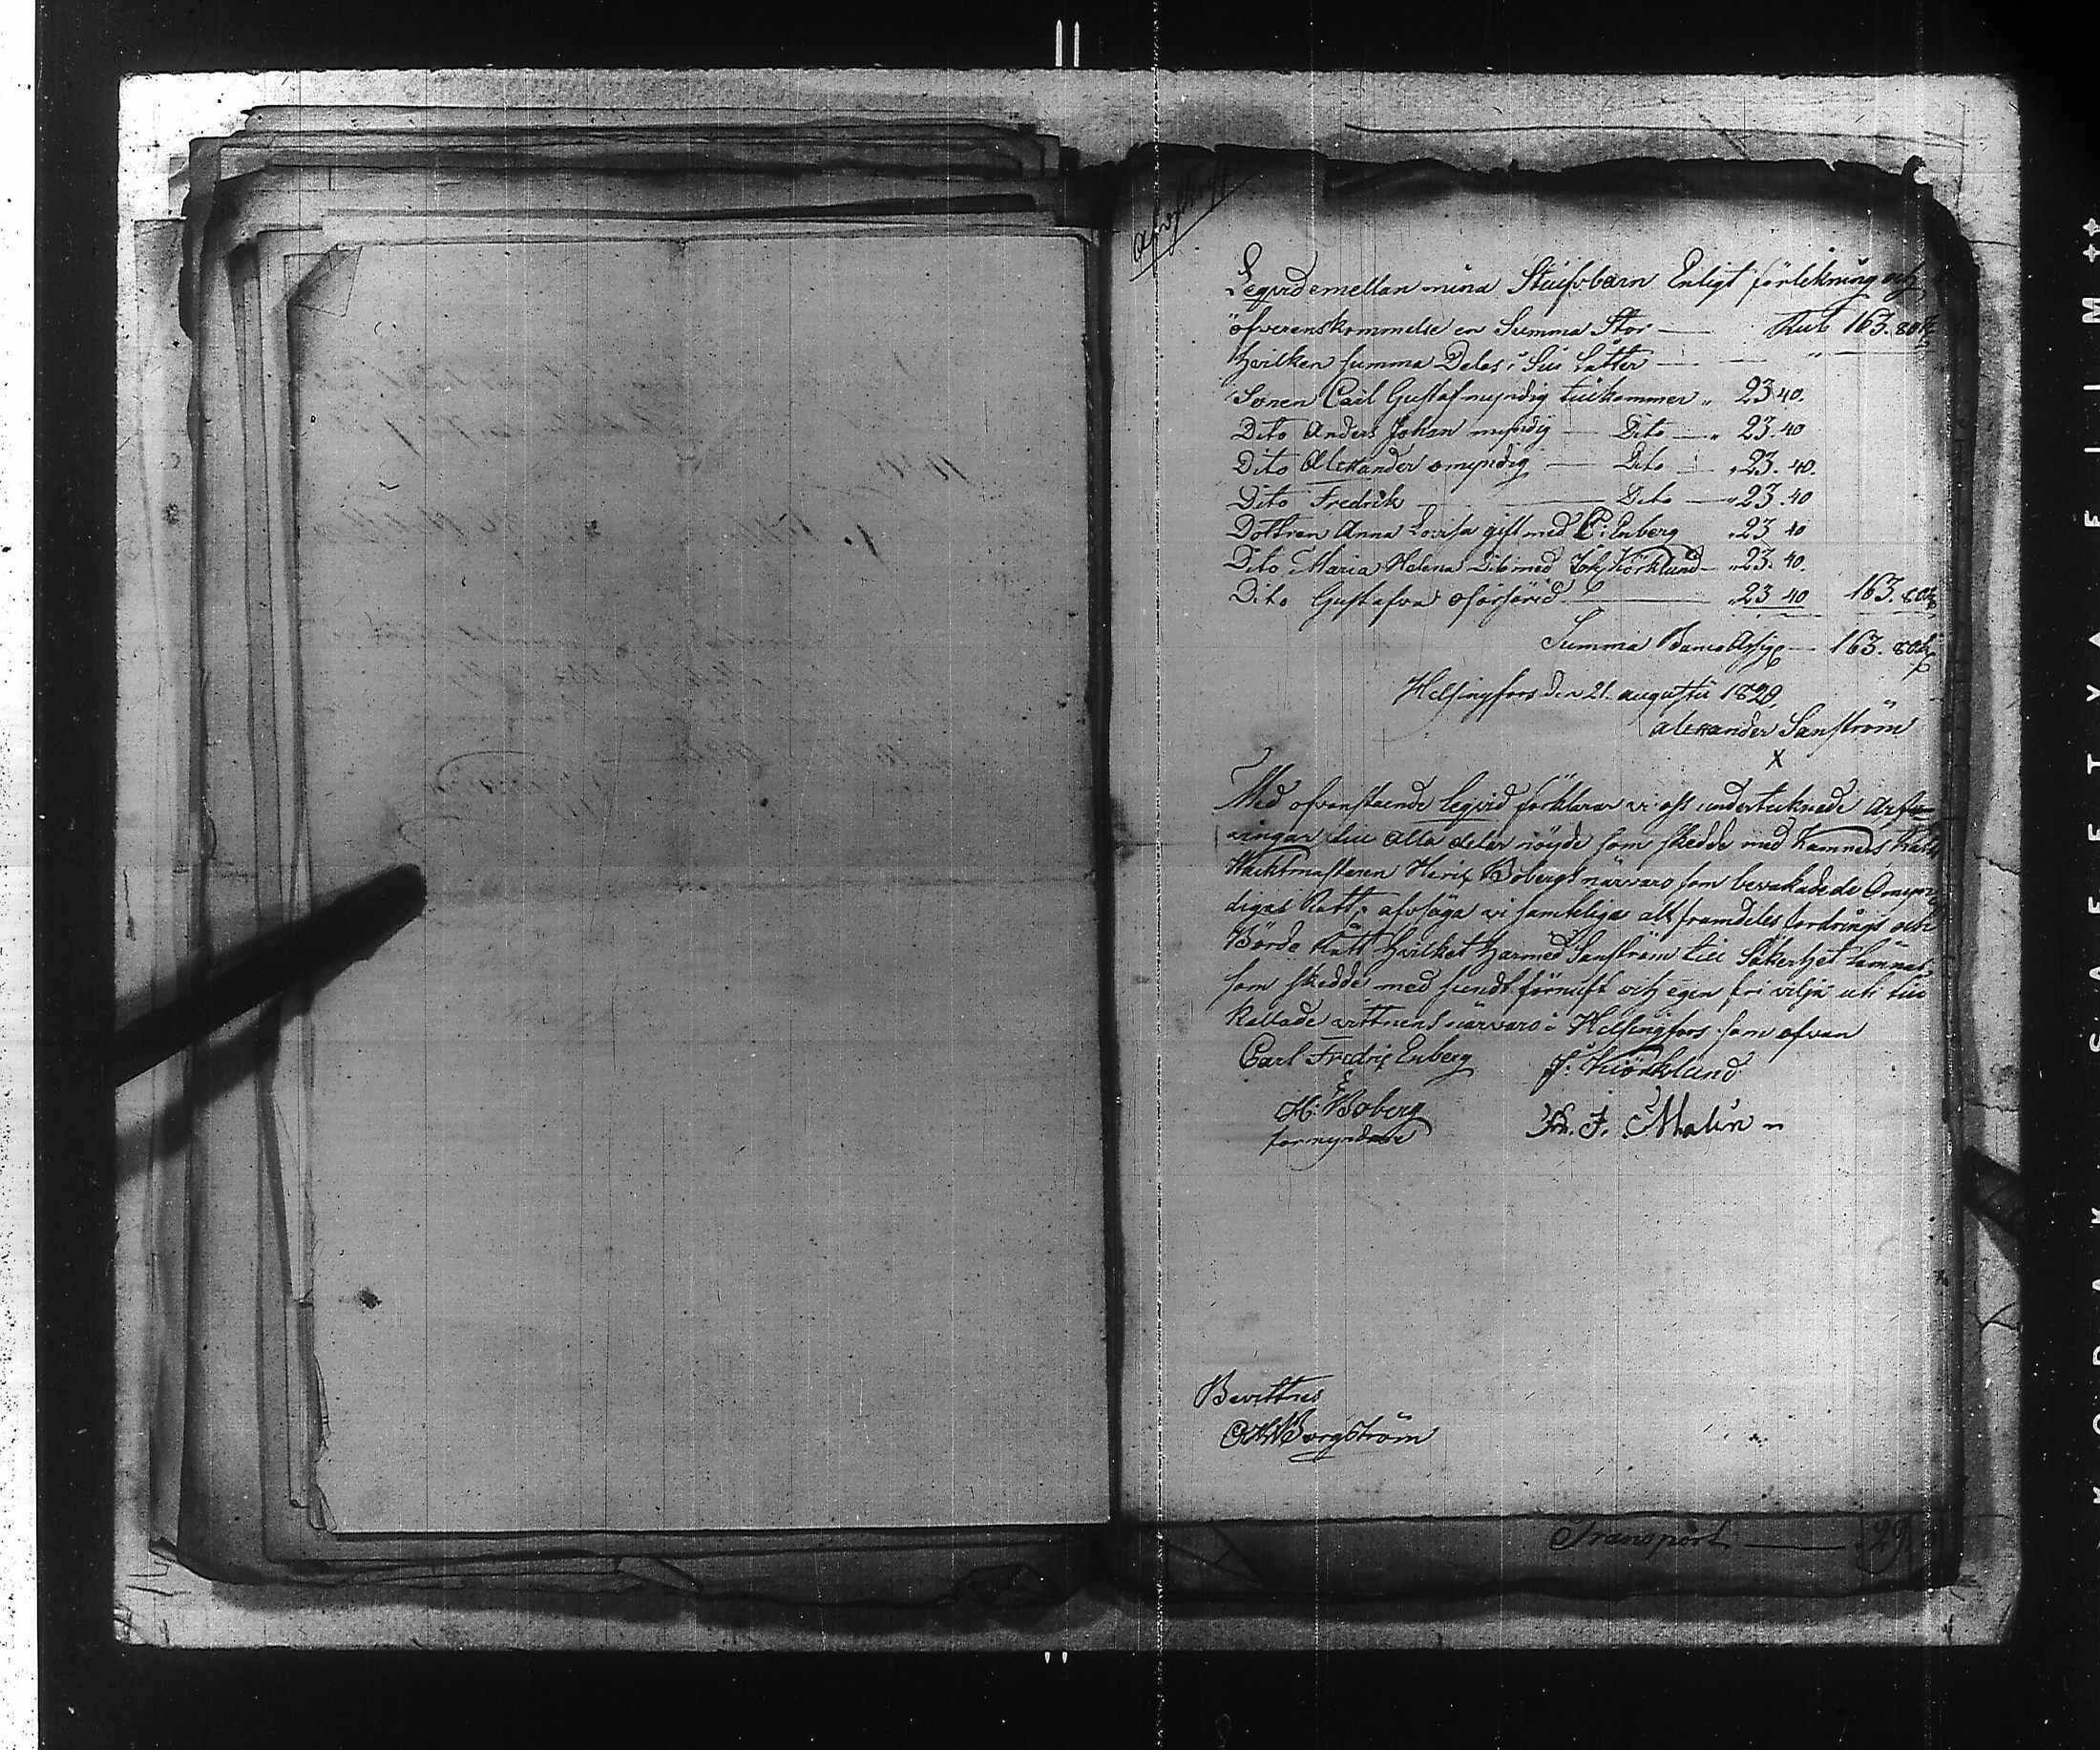 Afskrift
Leqvid emellan mina Stiufbarn Enligt förlikning och
öfverenskommelse en Summa Stor — Rub 163. 80 k
hvilken summa Delas i Siu Låtter —
Sonen Carl Gustaf myndig tillkommer „ 23 40.
Dito Anders Johan myndig — Dito — „ 23. 40
Dito Alexander omyndig — Dito — „ 23. 40.
Dito Fredrik — Dito — „ 23. 40
Dottren Anna Lovisa gift med C: Enberg „ 23 40
Dito Maria Helena Dito med Joh Kiörklund — „ 23. 40.
Dito Gustafva oförsörid — „ 23 40 163. 80 k
Summa Banco Assig — 163. 80 k
Helsingfors den 21. augusti 1829.
Alexander Sanström
X
Med ofvanstående Leqvid förklarar vi oss undertecknade Arfve
ringar till alla delar nöyde som skedde med Kamners Rätts
Wacktmästaren Henric Bobergs närvaro som bevakade de Omyn
digas Rätt, afsäga vi samteliga alt framdeles fordrings och
Börds Rätt hvilket harmed Sanström till Säkerhet lämnas
som skedde med sundt förnuft och egen fri vilja uti till
kallade vittnens närvaro i Helsingfors som ofvan
Carl Fredric Enberg J: Kiörklund
H: Boberg
formyndare
J. Malin
Bevittnes
Borgström
Transport — 29